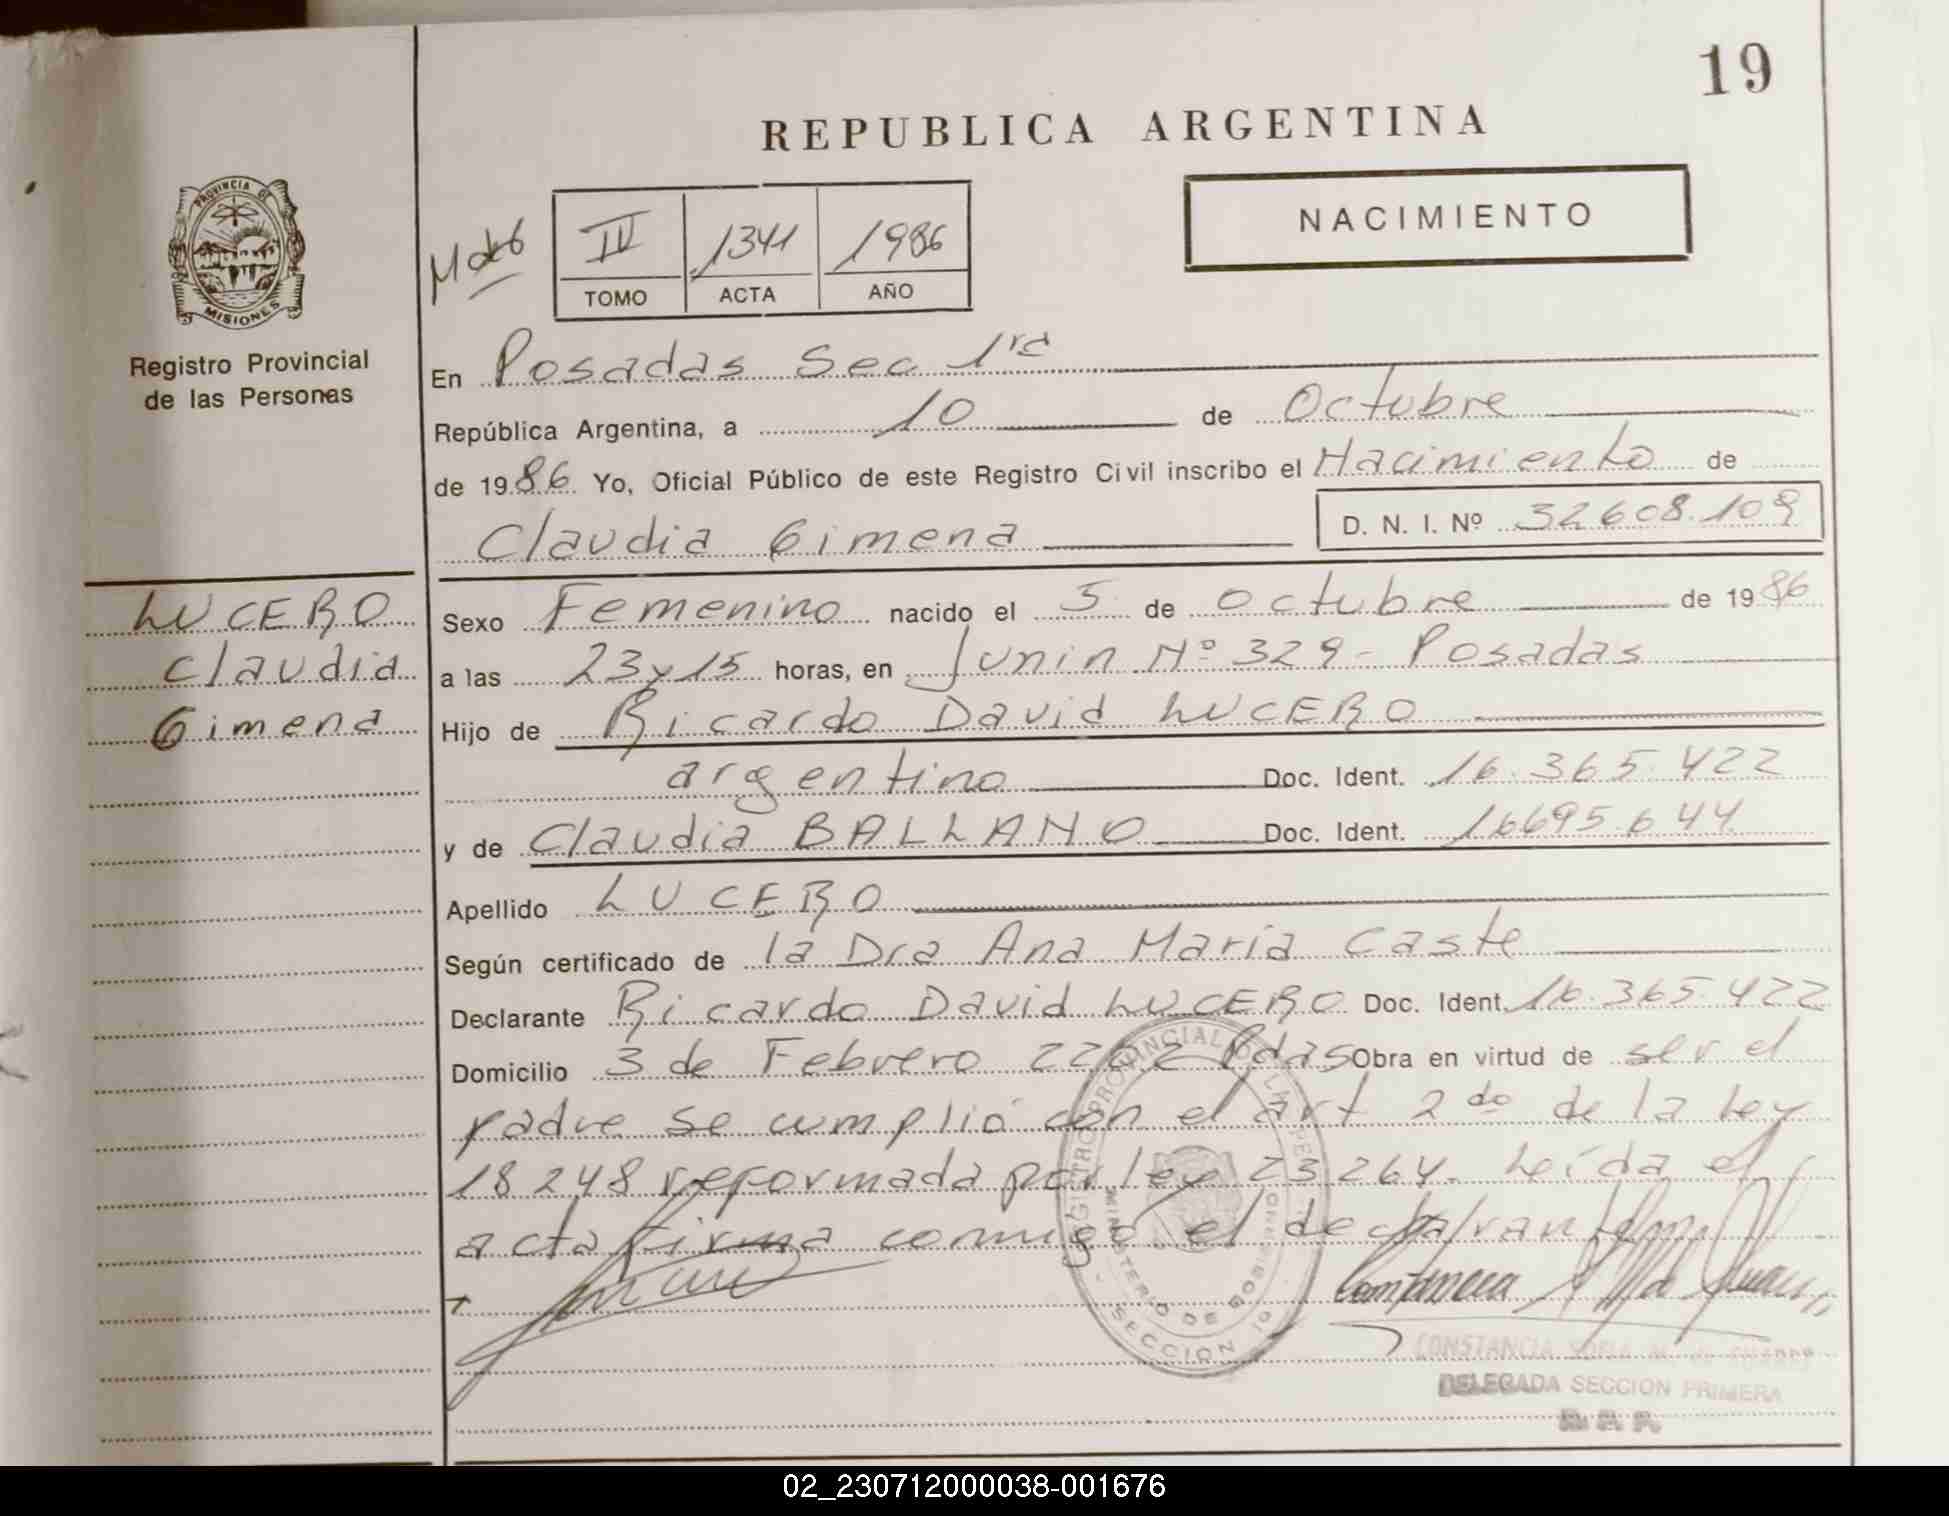 19
REPUBLICA ARGENTINA
NACIMIENTO
IV 1341 1986
TOMO ACTA AÑO
PROVINCIA DE MISIONES
Registro Provincial
de las Personas
En Posadas Sec 1ra
República Argentina, a 10 de Octubre
de 1986 Yo, Oficial Público de este Registro Civil inscribo el Nacimiento de
Claudia Gimena D. N. I. Nº 32608.109
LUCERO
Claudia
Gimena
Sexo Femenino nacido el 5 de octubre de 1986
a las 23 y 15 horas, en Junin Nº 329 - Posadas
Hijo de Ricardo David LUCERO
argentino Doc. Ident. 16.365.422
y de Claudia BALLANO Doc. Ident. 16695.644
Apellido LUCERO
Según certificado de la Dra Ana Maria Caste
Declarante Ricardo David LUCERO Doc. Ident. 16.365.422
Domicilio 3 de Febrero Pdas Obra en virtud de ser el
padre se cumplió con el art 2do de la ley
18248 reformada por ley 23.264. Leída el
acta firma conmigo el declarante
REGISTRO PROVINCIAL DE LAS PERSONAS
MINISTERIO DE GOBIERNO
SECCION 1ª
CONSTANCIA
DELEGADA SECCION PRIMERA
R. P. P.
02_230712000038-001676